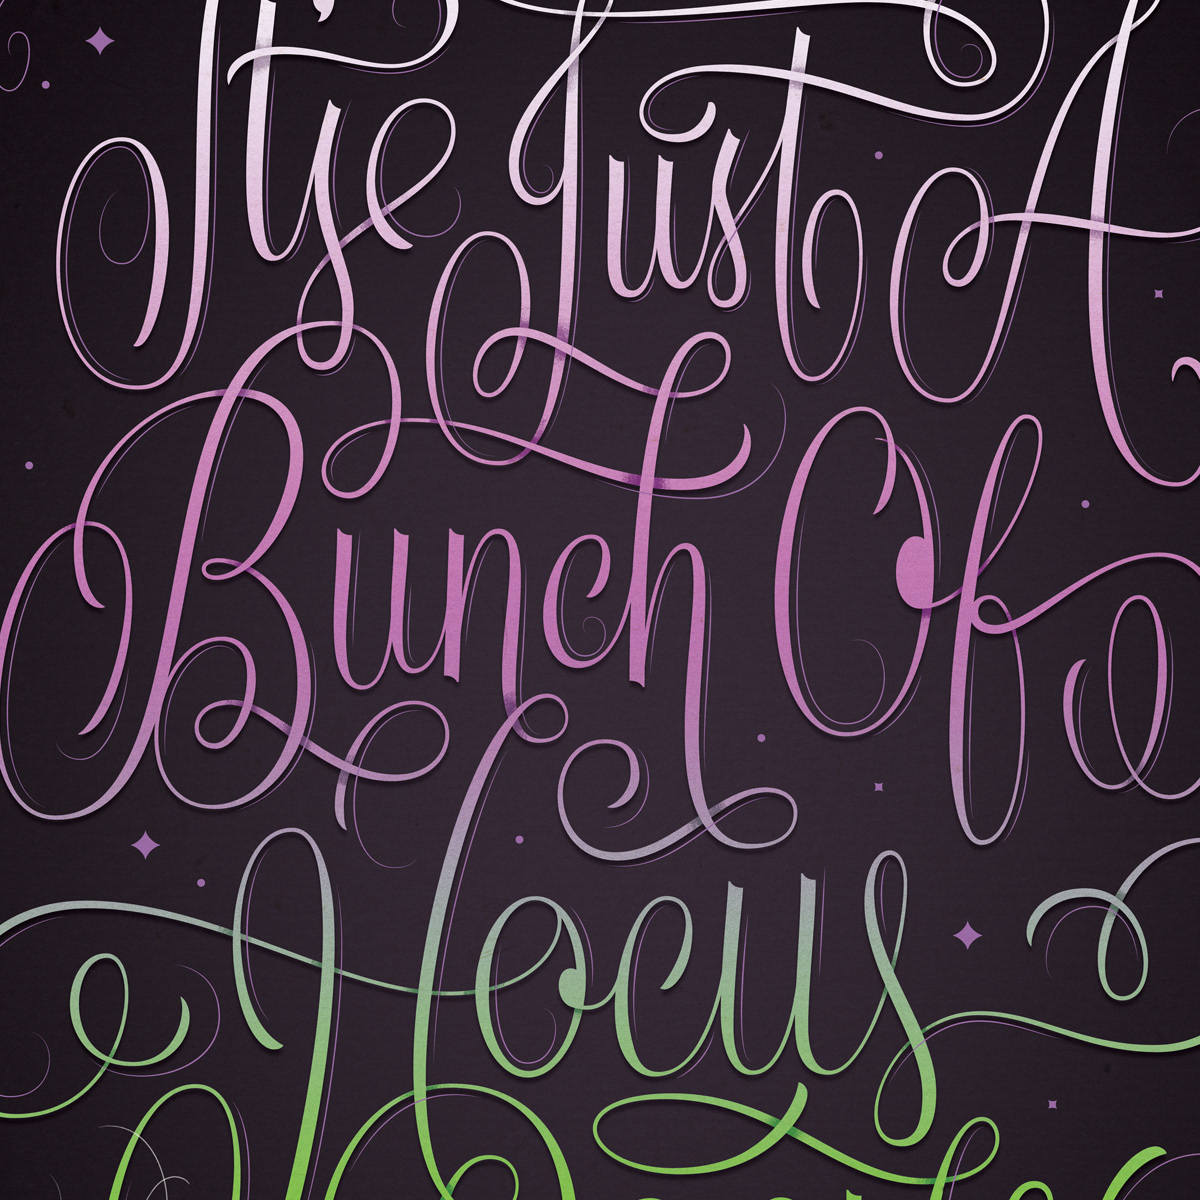 It's Just A
Bunch Of
Hocus